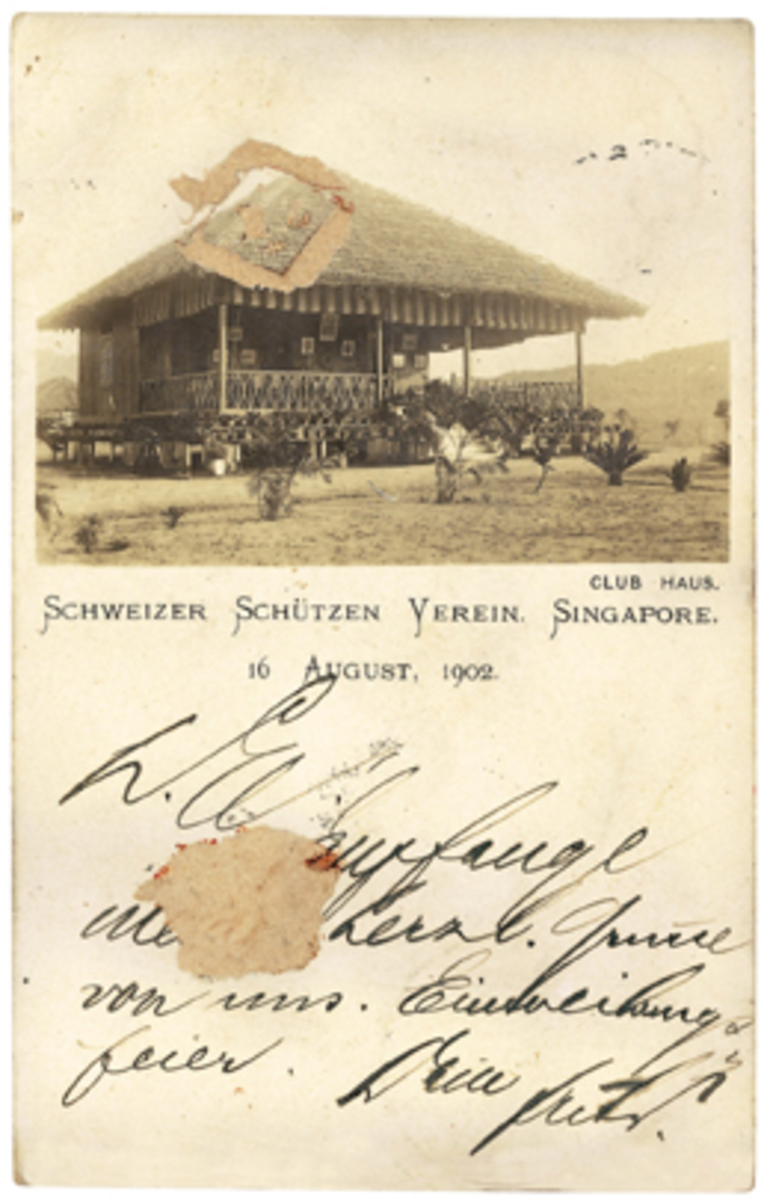 CLUB HAUS.
SCHWEIZER SCHÜTZEN VEREIN. SINGAPORE.
16 AUGUST, 1902.
L. E
Empfange
herzl. Grüsse
von uns. Einweihungs
feier. Dein Fritz.